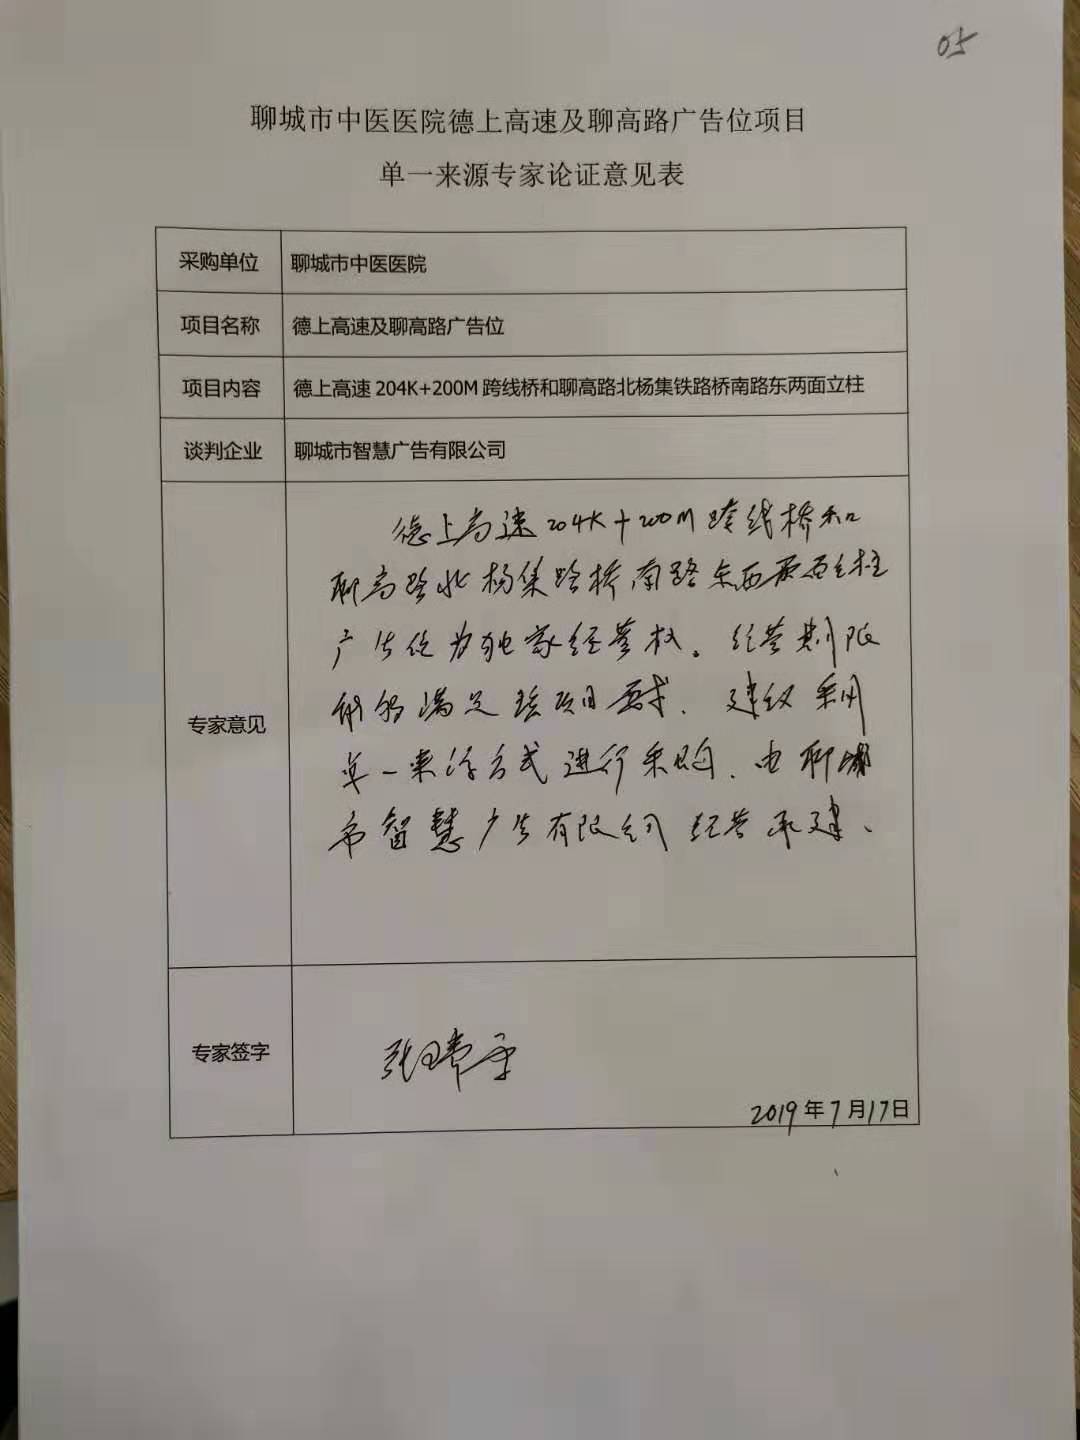 05
聊城市中医医院德上高速及聊高路广告位项目
单一来源专家论证意见表
采购单位 聊城市中医医院
项目名称 德上高速及聊高路广告位
项目内容 德上高速 204K+200M 跨线桥和聊高路北杨集铁路桥南路东两面立柱
谈判企业 聊城市智慧广告有限公司
专家意见
德上高速204K+200M跨线桥和
聊高路北杨集路桥南路东西两面立柱
广告位为独家经营权。经营期限
能够满足该项目要求、建议采用
单一来源方式进行采购、由聊城
市智慧广告有限公司经营承建、
专家签字
2019年7月17日